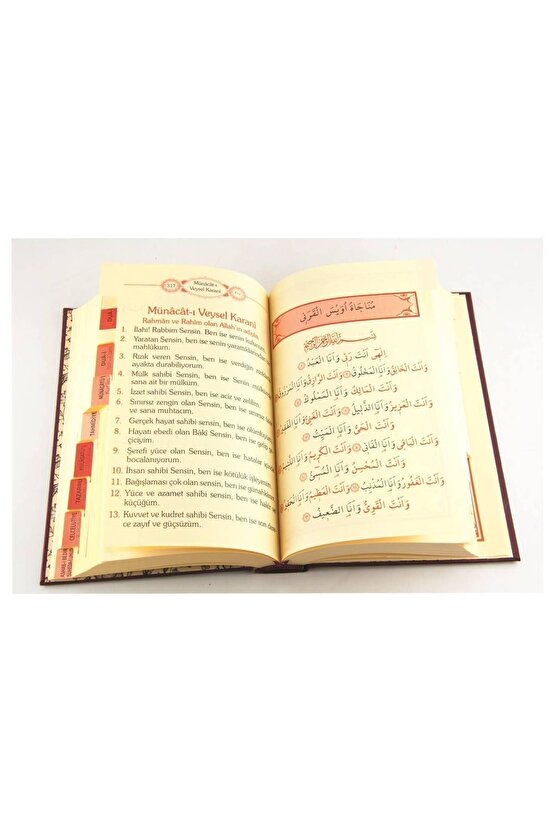 317
Münâcât-ı
Veysel Karanî
Münâcât-ı Veysel Karanî
Rahmân ve Rahîm olan Allah'ın adıyla
1. İlahî! Rabbim Sensin. Ben ise Senin kulunum.
2. Yaratan Sensin, ben ise senin yarattıklarından
mahlûkum.
3. Rızık veren Sensin, ben ise verdiğin
ayakta durabiliyorum.
4. Mülk sahibi Sensin, ben ise Senin
sana ait bir mülküm.
5. İzzet sahibi Sensin, ben ise aciz ve zelilim.
6. Sınırsız zengin olan Sensin, ben ise
ve sana muhtacım.
7. Gerçek hayat sahibi Sensin, ben ise
8. Hayatı ebedi olan Bâkî Sensin, ben ise gelip
çiciyim.
9. Şerefi yüce olan Sensin, ben ise hatalar
bocalanıyorum.
10. İhsan sahibi Sensin, ben ise kötülük
11. Bağışlaması çok olan sensin, ben ise
12. Yüce ve azamet sahibi Sensin, ben ise hakir ve
küçüğüm.
13. Kuvvet ve kudret sahibi Sensin, ben ise son
ce zayıf ve güçsüzüm.
DUÂ-İ
MÜNÂCÂT-I
TAHMÎDİYE
CELCELÛTİYE
مُنَاجَاةُ اُوَيْسَ الْقَرَنِى
اِلٰهِى اَنْتَ رَبِّى وَاَنَا الْعَبْدُ
وَاَنْتَ الْخَالِقُ وَاَنَا الْمَخْلُوقُ وَاَنْتَ الرَّزَّاقُ وَاَنَا الْمَرْزُوقُ
وَاَنْتَ الْمَالِكُ وَاَنَا الْمَمْلُوكُ
وَاَنْتَ الْعَزِيزُ وَاَنَا الذَّلِيلُ وَاَنْتَ الْغَنِىُّ وَاَنَا الْفَقِيرُ
وَاَنْتَ الْحَىُّ وَاَنَا الْمَيِّتُ
وَاَنْتَ الْبَاقِى وَاَنَا الْفَانِى وَاَنْتَ الْكَرِيمُ وَاَنَا
وَاَنْتَ الْمُحْسِنُ وَاَنَا الْمُسِىءُ
وَاَنْتَ الْغَفُورُ وَاَنَا الْمُذْنِبُ وَاَنْتَ الْعَظِيمُ وَاَنَا الْحَقِيرُ
وَاَنْتَ الْقَوِىُّ وَاَنَا الضَّعِيفُ